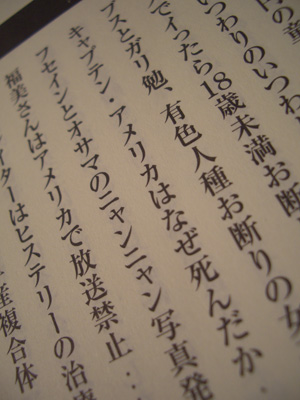 の童
いつわりのいつわ
でイったら18歳未満お断
プスとガリ勉、有色人種お断りの女
キャプテン・アメリカはなぜ死んだか
フセインとオサマのニャンニャン写真発
福美さんはアメリカで放送禁止…
イターはヒステリーの治療
産複合体